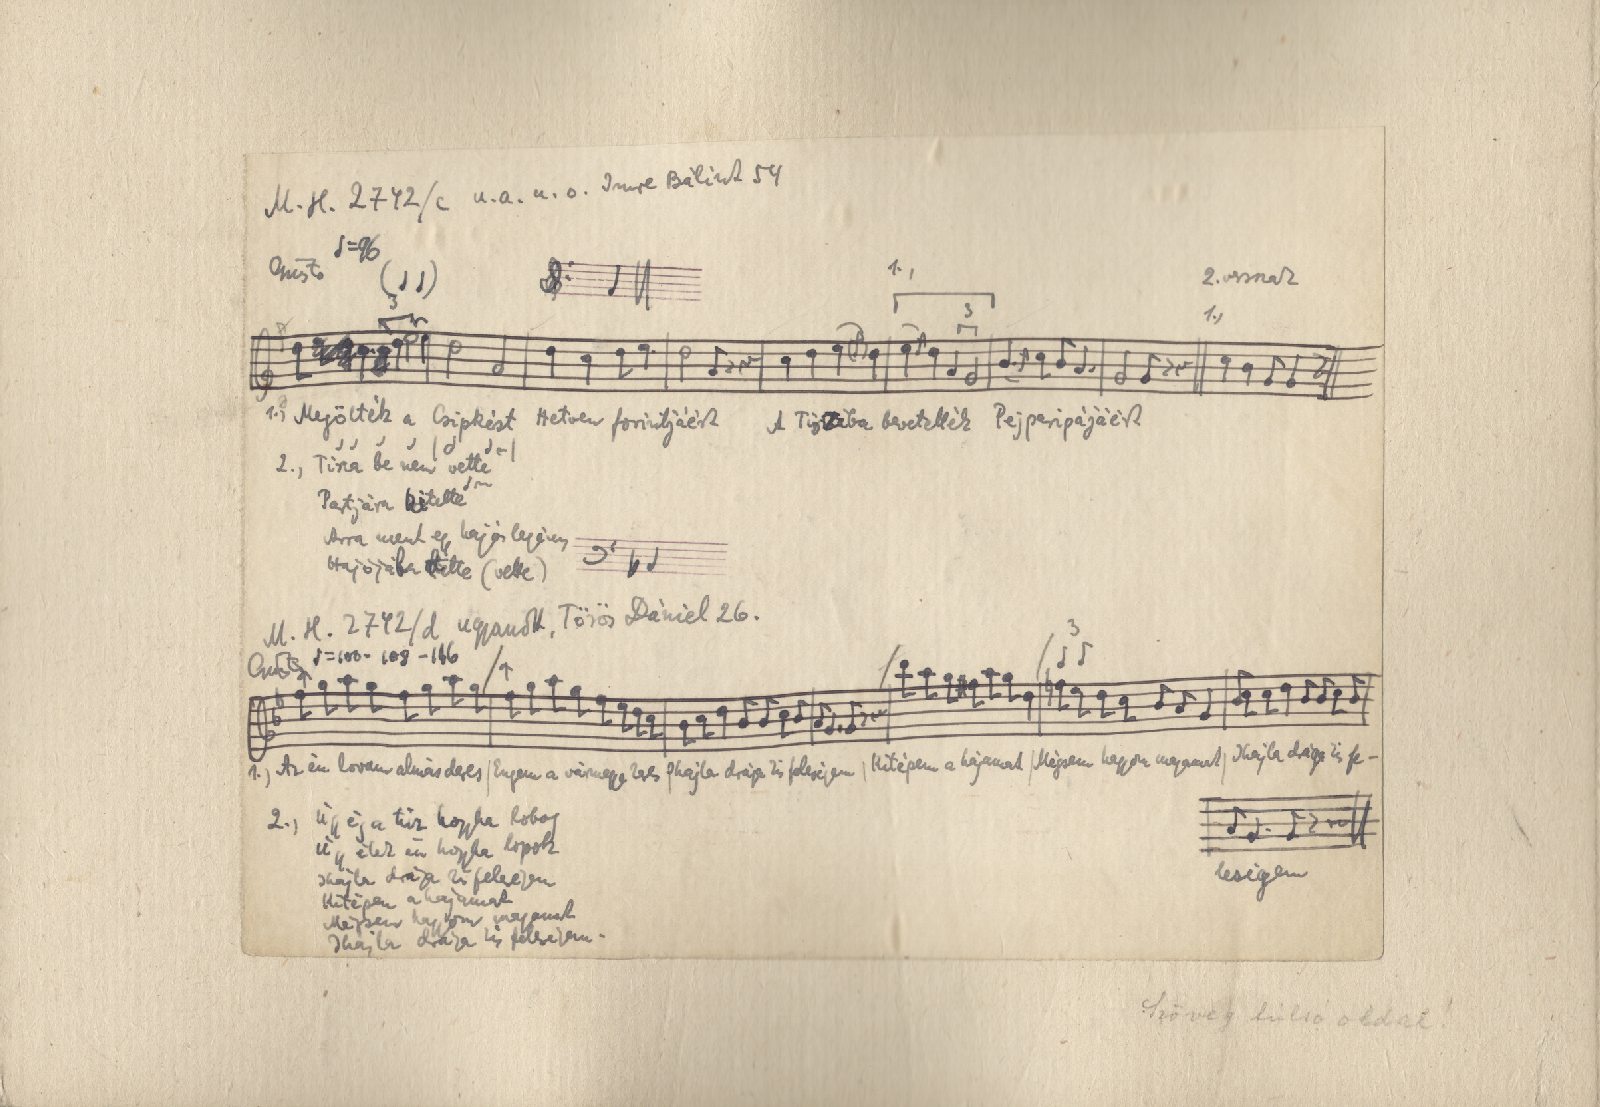 M. H. 2742/c u.a.u.o. Imre Bálint 54
Giusto ♩=96
(♩♩)
3
1.,
3
2. versnak
1.,
1., Megölték a Csipkést Hetven forintjáért A Tiszába bevetették Pejparipájáért
2., Tisza be nem vette
Partjára kitette
Arra ment egy hajós legény
Hajójába tette (vette)
M. H. 2742/d ugyanott, Törös Dániel 26.
Giusto ♩=100-108-116
3
1., Az én lovam almás deres / Engem a vármegye keres / Ihajla drága kis feleségem / Kitépem a hajamat / Mégsem hagyom magamat / Ihajla drága kis fe-
leségem
2., Úgy ég a tűz hogyha lobog
Úgy élek én hogyha lopok
Ihajla drága kis feleségem
Kitépem a hajamat
Mégsem hagyom magamat
Ihajla drága kis feleségem.
Szöveg túlsó oldal!